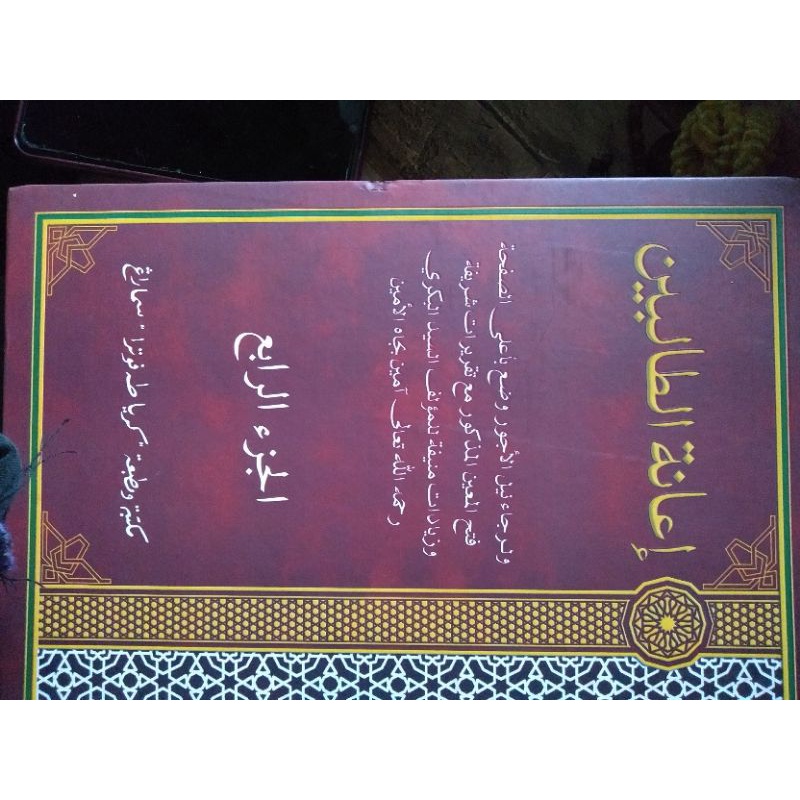 إعانة الطالبين
ولرجاء نيل الأجور وضع بأعلى الصفحة
فتح المعين المذكور مع تقريرات شريفة
وزيادات منيفة للمؤلف السيد البكري
رحمه الله تعالى آمين بجاه الأمين
الجزء الرابع
مكتبة ومطبعة "كريا طه فوترا" سماراڠ